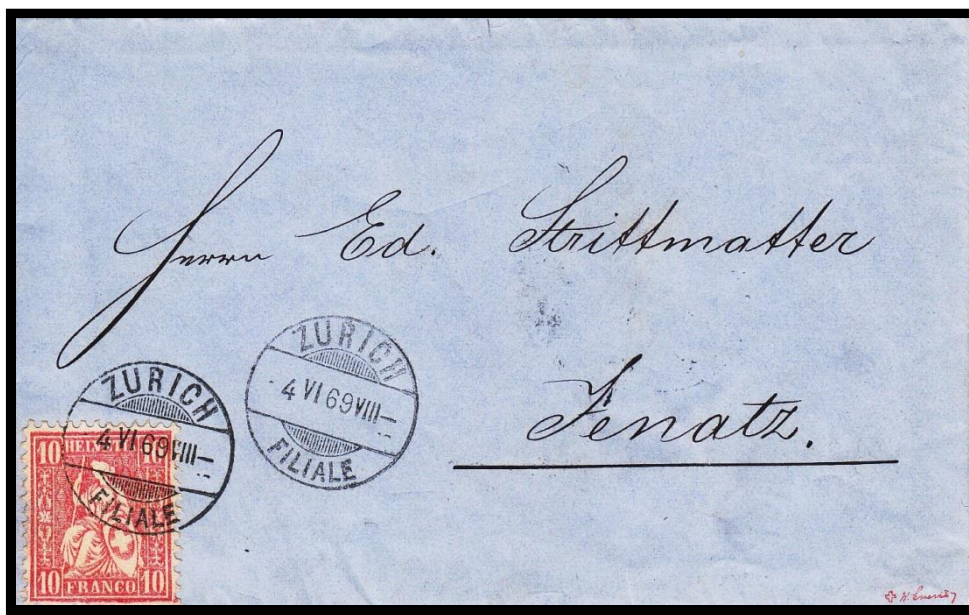 Herrn Ed. Strittmatter
Jenatz.
ZURICH
4 VI 69 VIII–
FILIALE
ZURICH
4 VI 69 VIII–
FILIALE
10 HELV
10 FRANCO 10